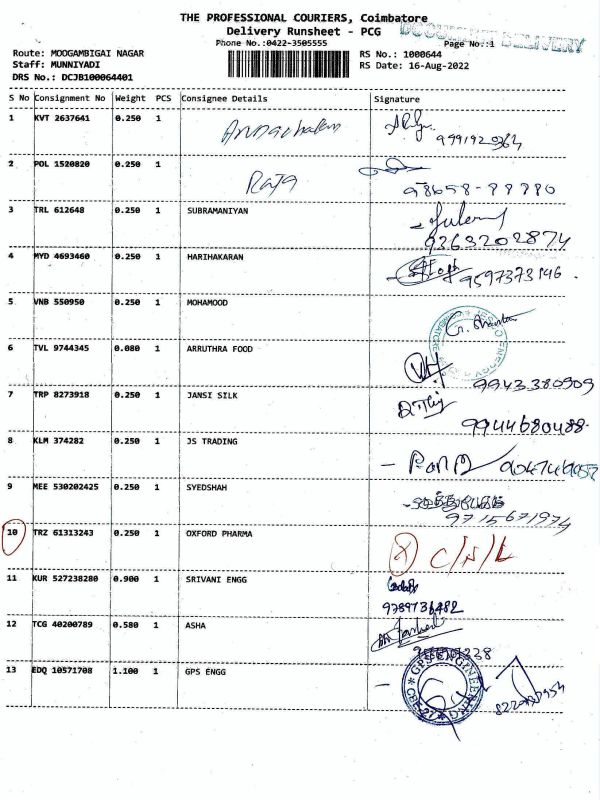 THE PROFESSIONAL COURIERS, Coimbatore
Delivery Runsheet - PCG
DOCUMENT DELIVERY
Phone No.:0422-3505555
Page No.:1
Route: MOOGAMBIGAI NAGAR
RS No.: 1000644
Staff: MUNNIYADI
RS Date: 16-Aug-2022
DRS No.: DCJB100064401
S No Consignment No Weight PCS Consignee Details Signature
1 KVT 2637641 0.250 1 Arunachalam
2 POL 1520820 0.250 1 Raja
3 TRL 612648 0.250 1 SUBRAMANIYAN
9363202874
4 MYD 4693460 0.250 1 HARIHAKARAN
9597373146
5 VNB 550950 0.250 1 MOHAMOOD
6 TVL 9744345 0.080 1 ARRUTHRA FOOD
9943380909
7 TRP 8273918 0.250 1 JANSI SILK
9944680488
8 KLM 374282 0.250 1 JS TRADING
9 MEE 530202425 0.250 1 SYEDSHAH
9715671974
10 TRZ 61313243 0.250 1 OXFORD PHARMA
C/N/L
11 KUR 527238280 0.900 1 SRIVANI ENGG
9789736482
12 TCG 40200789 0.580 1 ASHA
13 EDQ 10571708 1.100 1 GPS ENGG
GPS ENGINEERING
CBE-27